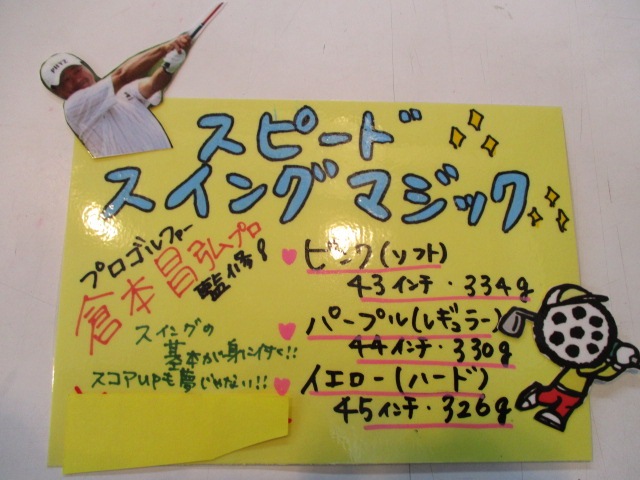 PHYZ
スピード
スイングマジック
プロゴルファー
倉本昌弘プロ
監修!
スイングの
基本が身に付く!!
スコアUPも夢じゃない!!
ピンク(ソフト)
43インチ・334g
パープル(レギュラー)
44インチ・330g
イエロー(ハード)
45インチ・326g